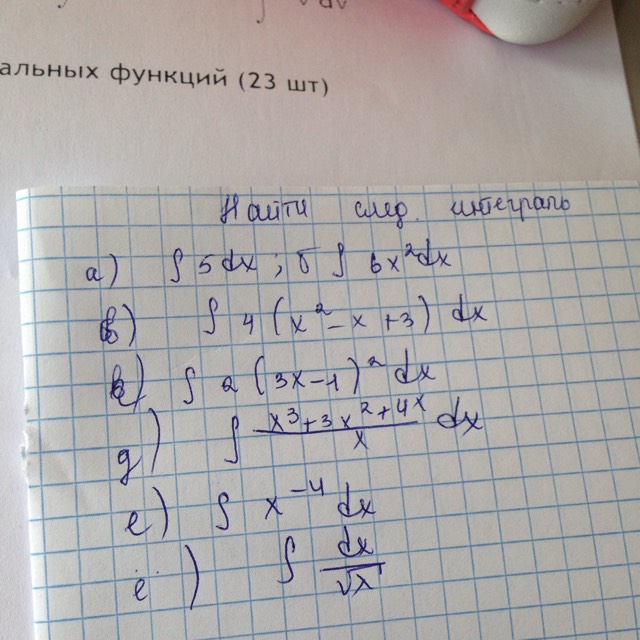 √dV
альных функций (23 шт)
Найти след. интегралы
а) ∫ 5 dx ; б ∫ 6x² dx
в) ∫ 4 (x² - x + 3) dx
∫ 2 (3x - 1)² dx
д) ∫ (x³ + 3x² + 4x)/x dx
е) ∫ x⁻⁴ dx
ё) ∫ dx/√x